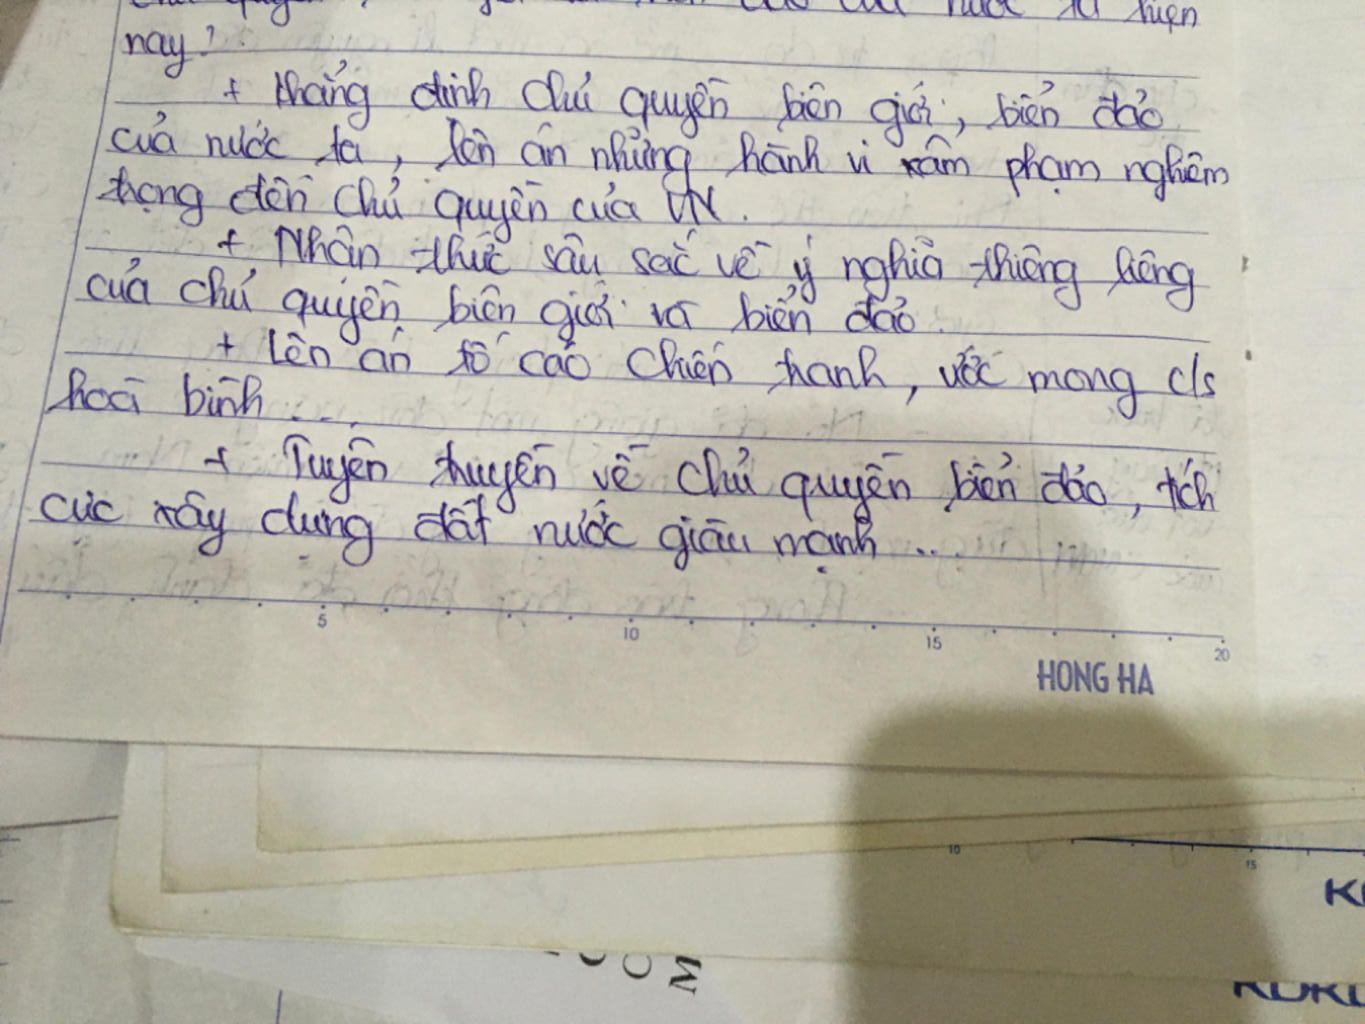 nước ta hiện
nay?
+ Khẳng định chủ quyền biên giới, biển đảo
của nước ta, lên án những hành vi xâm phạm nghiêm
trọng đến chủ quyền của VN.
+ Nhận thức sâu sắc về ý nghĩa thiêng liêng
của chủ quyền biên giới và biển đảo.
+ Lên án tố cáo chiến tranh, ước mong c/s
hoà bình ....
+ Tuyên truyền về chủ quyền biển đảo, tích
cực xây dựng đất nước giàu mạnh ...
5 10 15 20
HONG HA
10 15